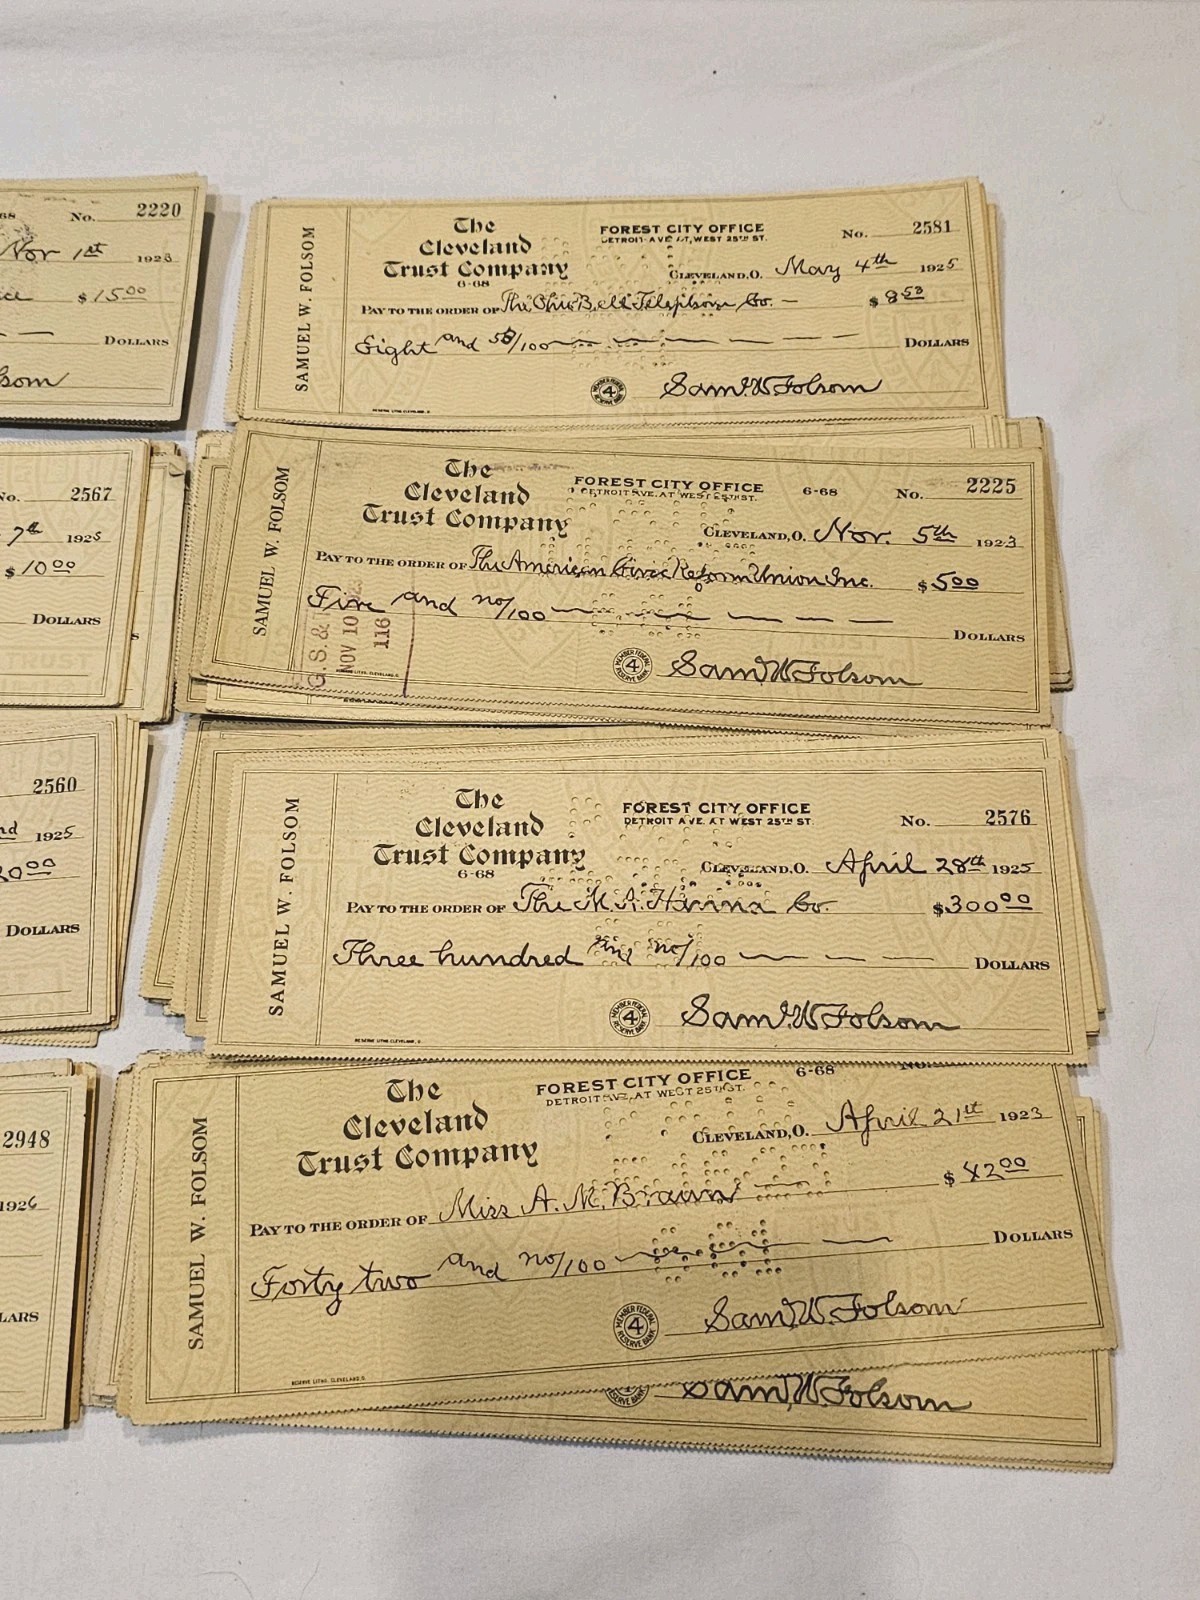 68 No. 2220
Nov 1st 1923
$15 00
DOLLARS
No. 2567
7th 1925
$10 00
DOLLARS
2560
1925
20 00
DOLLARS
2948
1926
LARS
SAMUEL W. FOLSOM
The
Cleveland
Trust Company
6-68
FOREST CITY OFFICE
DETROIT AVE. AT. WEST 25TH ST.
No. 2581
CLEVELAND,O. May 4th 1925
PAY TO THE ORDER OF The Ohio Bell Telephone Co. — $8 53
Eight and 53/100 DOLLARS
MEMBER FEDERAL RESERVE BANK 4
Sam'l W Folsom
RESERVE LITHO. CLEVELAND, O.
SAMUEL W. FOLSOM
The
Cleveland
Trust Company
FOREST CITY OFFICE 6-68 No. 2225
DETROIT AVE. AT WEST 25TH ST.
CLEVELAND,O. Nov. 5th 1923
PAY TO THE ORDER OF The American Civic Reform Union Inc. $5 00
Five and no/100 DOLLARS
G.S.&
NOV 10
116
MEMBER FEDERAL RESERVE BANK 4
Sam'l W Folsom
SAMUEL W. FOLSOM
The
Cleveland
Trust Company
6-68
FOREST CITY OFFICE
DETROIT AVE. AT WEST 25TH ST.
No. 2576
CLEVELAND,O. April 28th 1925
PAY TO THE ORDER OF The M. A. Hanna Co. $300 00
Three hundred and no/100 DOLLARS
MEMBER FEDERAL RESERVE BANK 4
Sam'l W Folsom
RESERVE LITHO. CLEVELAND, O.
SAMUEL W. FOLSOM
The
Cleveland
Trust Company
FOREST CITY OFFICE 6-68 No.
DETROIT AVE. AT WEST 25TH ST.
CLEVELAND,O. April 21st 1923
PAY TO THE ORDER OF Miss A. M. Braun $42 00
Forty two and no/100 DOLLARS
MEMBER FEDERAL RESERVE BANK 4
Sam'l W. Folsom
RESERVE LITHO. CLEVELAND, O.
Sam'l W. Folsom